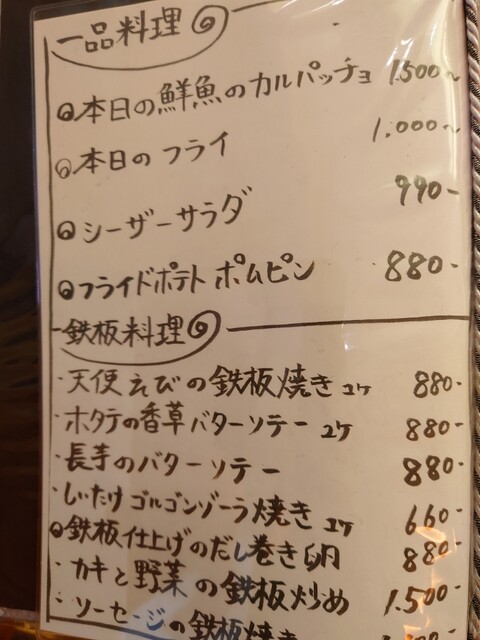 一品料理
本日の鮮魚のカルパッチョ 1.500~
本日のフライ 1.000~
シーザーサラダ 990-
フライドポテト ポムピン 880-
鉄板料理
・天使えびの鉄板焼き 2ケ 880-
・ホタテの香草バターソテー 2ケ 880-
・長芋のバターソテー 880-
・しいたけゴルゴンゾーラ焼き 2ケ 660-
鉄板仕上げのだし巻き卵 880-
・カキと野菜の鉄板炒め 1.500-
・ソーセージの鉄板焼き